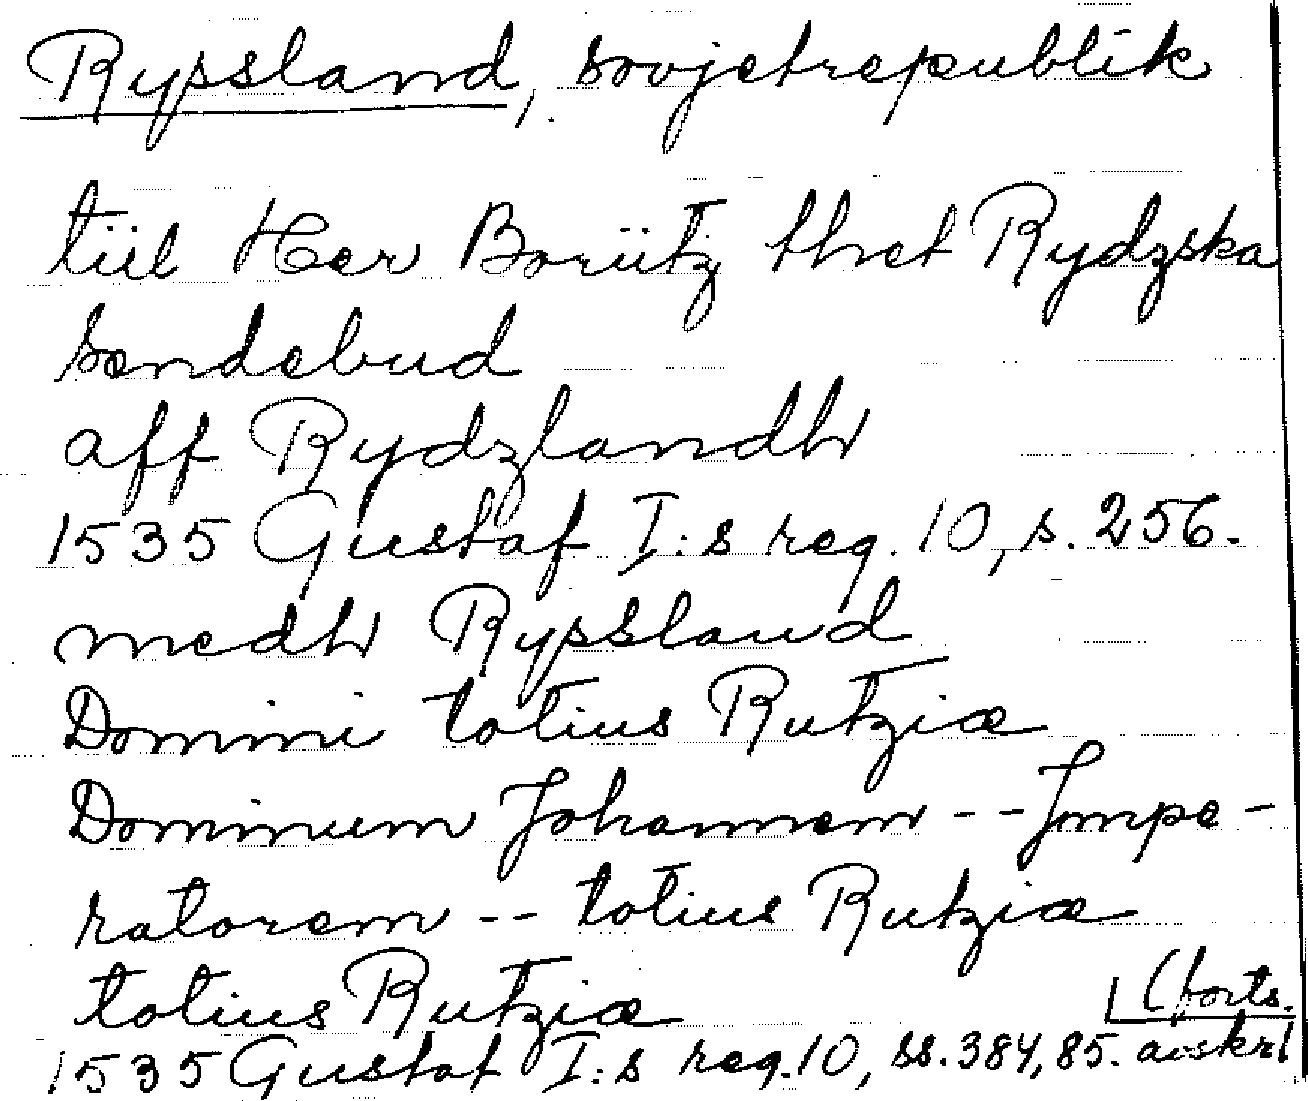 Ryssland, sovjetrepublik
tiil Her Boriitz thet Rydzska
sendebud
aff Rydzlandh
1535 Gustaf I:s reg. 10, s. 256.
medh Ryssland
Domini totius Rutziæ
Dominum Johannem -- Impe-
ratorem -- totius Rutziæ
totius Rutziæ
(forts.
1535 Gustaf I:s reg. 10, ss. 384, 85. avskr.